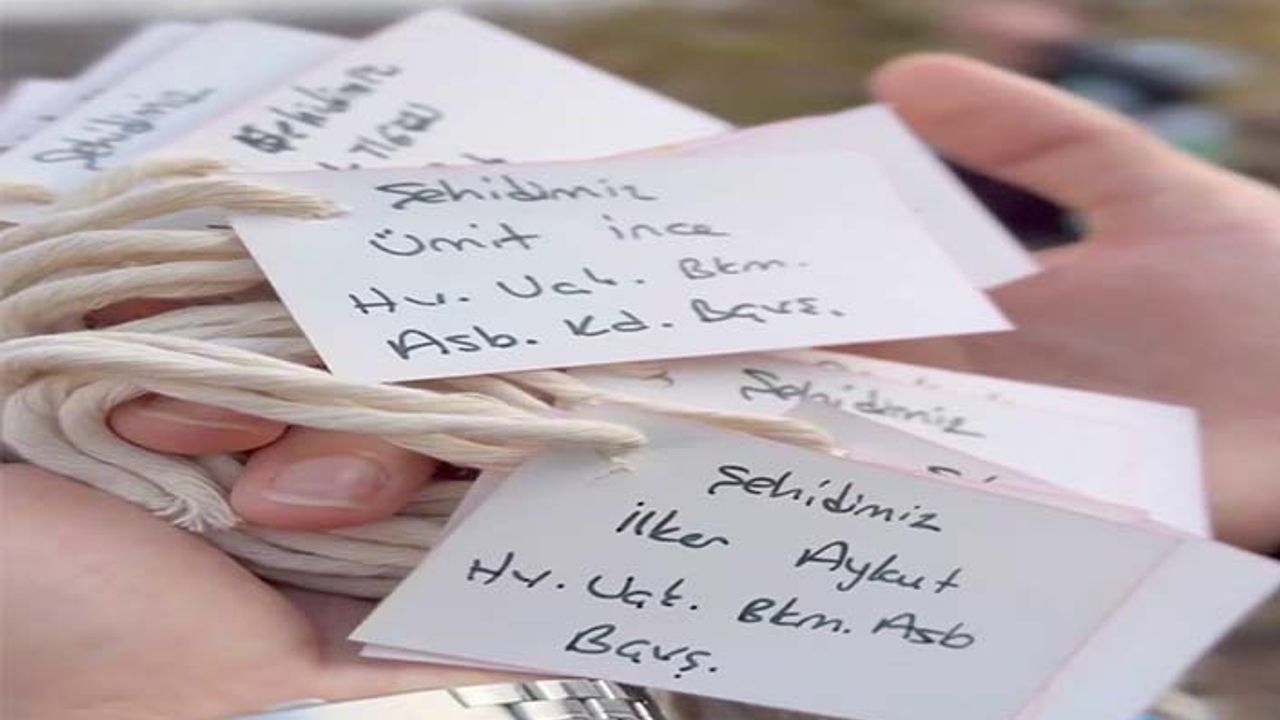 Şehidimiz
Şehidimiz
Şehidimiz
Ümit ince
Hv. Uçk. Bkm.
Asb. Kd. Bçvş.
Şehidimiz
Şehidimiz
ilker Aykut
Hv. Uçk. Bkm. Asb
Bçvş.